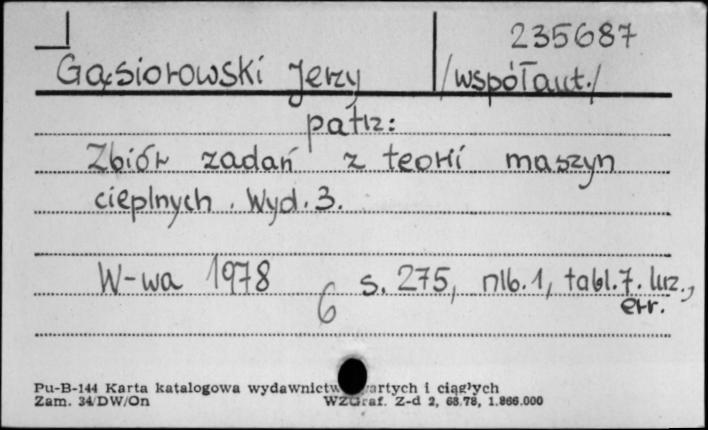 235687
Gąsiorowski Jerzy /współaut./
patrz:
Zbiór zadań z teorii maszyn
cieplnych. Wyd. 3.
W-wa 1978 s. 275, nlb. 1, tabl. 7. luz.,
err.
6
Pu-B-144 Karta katalogowa wydawnictw zwartych i ciągłych
Zam. 34/DW/On WZGraf. Z-d 2, 1.866.000